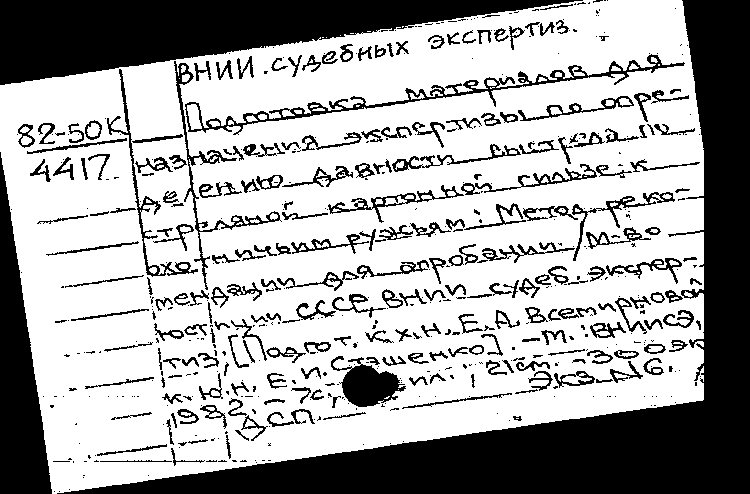 ВНИИ судебных экспертиз.
82-50К
4417
Подготовка материалов для
назначения экспертизы по опре-
делению давности выстрела по
стреляной картонной гильзе к
охотничьим ружьям: Метод. реко-
мендации для апробации. / М-во
юстиции СССР, ВНИИ судеб. экспер-
тиз; [Подгот. к.х.н. Е.А. Всемирновой
к.ю.н. Е.И. Сташенко]. - М.: ВНИИСЭ,
1982. - 7с, ил.; 21см. - 300эк
ДСП Экз. N6.